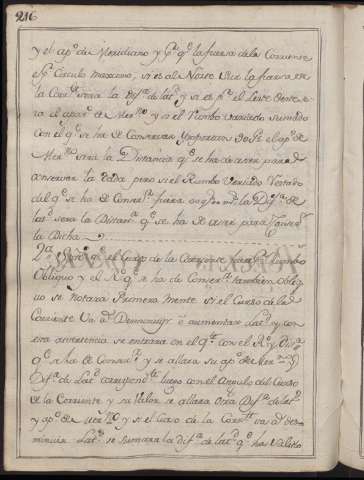 216
y el ap.º de Meridiano y q.º q.e la fuersa de la Corriente
es Circulo maximo, si es al Norte Sur la fuersa de
la Corr.te sera la Dif.ª de lat.d y si es p.r el Leste Oeste se
ra el apar.º de Mer.no y si el Rumbo Variado sumado
con el q.e se ha de Conservar el ap.º de
Mer.no sera la Distancia q.e se ha de andar para
conservar la pero si el Rumbo Variado Restado
del q.e se ha de Conser.r fuera la Dif.ª de
lat.d sera la Distan.ª q.e se ha de andar para Conser.r
la Dicha
2.ª q.e el Curso de la Corriente para Rumbo
Obliquo y el R.º q.e se ha de Conser.r tambien Obliq
uo se Notara Primera Mente si el Curso de la
Corriente Va a Demenuyr o aumentar Lat.d y con
esta advertencia se entrara con el q.e con el R.º y Dis.ª
q.e se ha de Conser.r y se allara su ap.º de Mer.no y
Dif.ª de Lat.d correspond.te luego con el Angulo del Curso
de la Corriente y su Valor se allara Otra Dif.ª de Lat.d
y ap.º de Mer.no y si el Curso de la Corr.te va a des
minuir Lat.d se sumara la dif.ª de lat.d q.e ha Valido